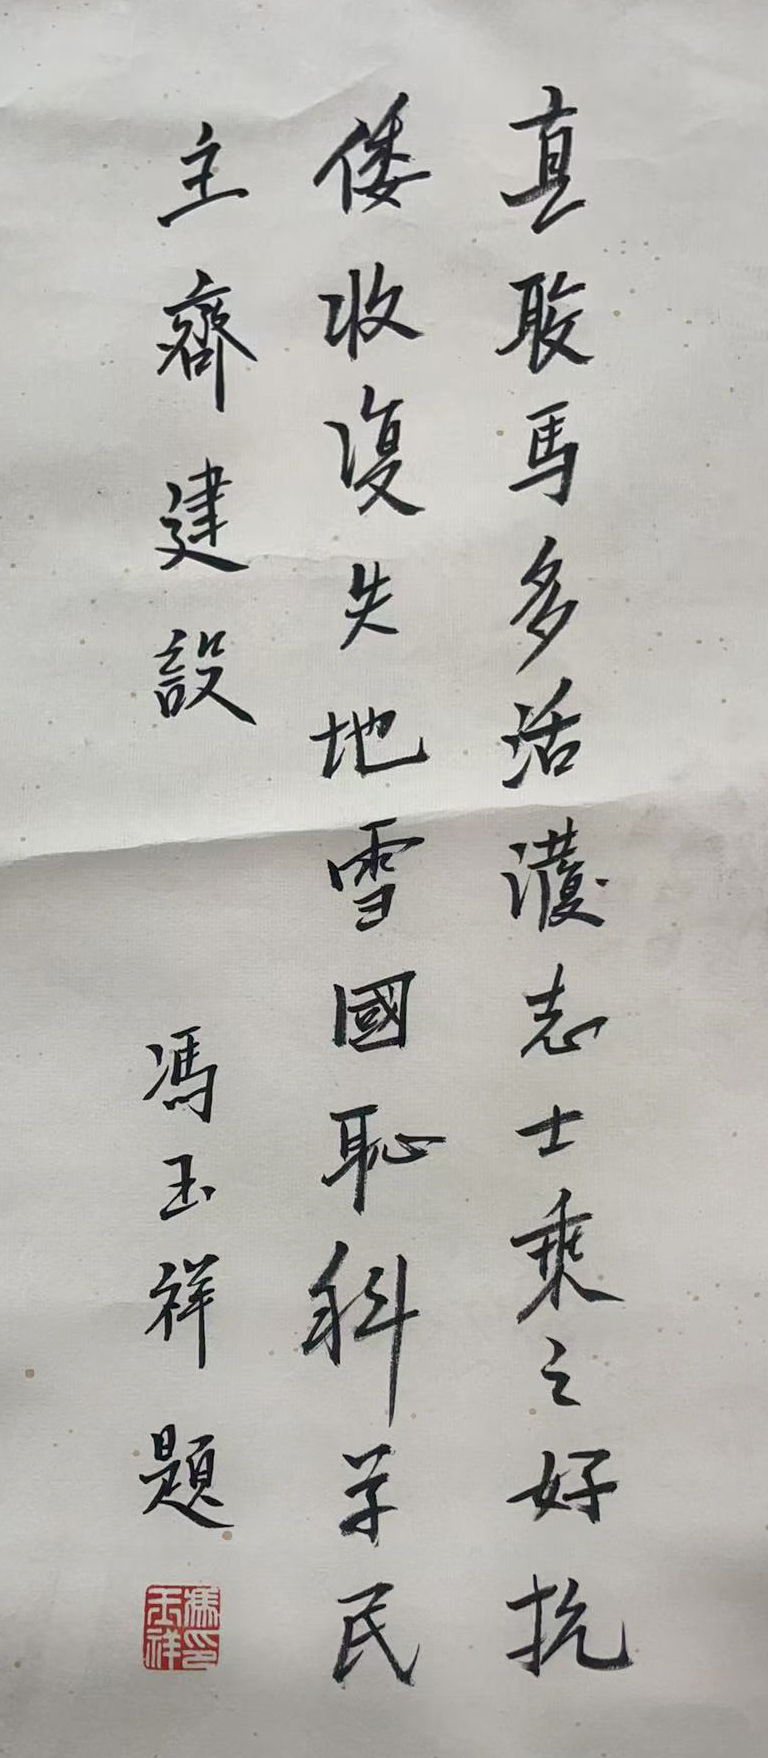 真駿馬多活潑志士乘之好抗
倭收復失地雪國恥科学民
主齊建設
馮玉祥題
馮玉祥印